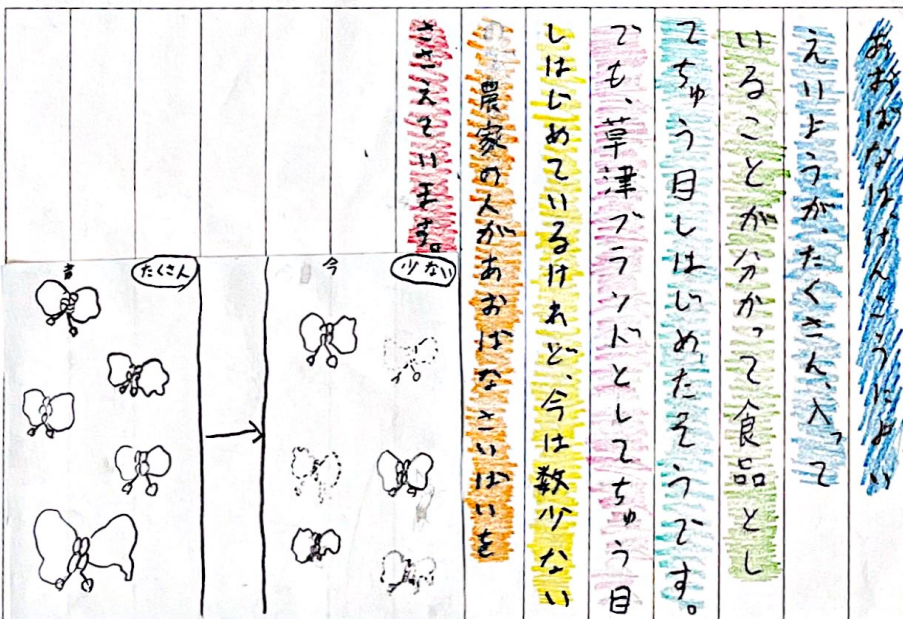 あおばなは、けんこうによい
えいようが、たくさん、入って
いることが分かって食品とし
てちゅう目しはじめ、たそうです。
でも、草津ブランドとしてちゅう目
しはじめているけれど、今は数少ない
農家の人があおばなさいばいを
ささえています。
少ない
今
たくさん
昔